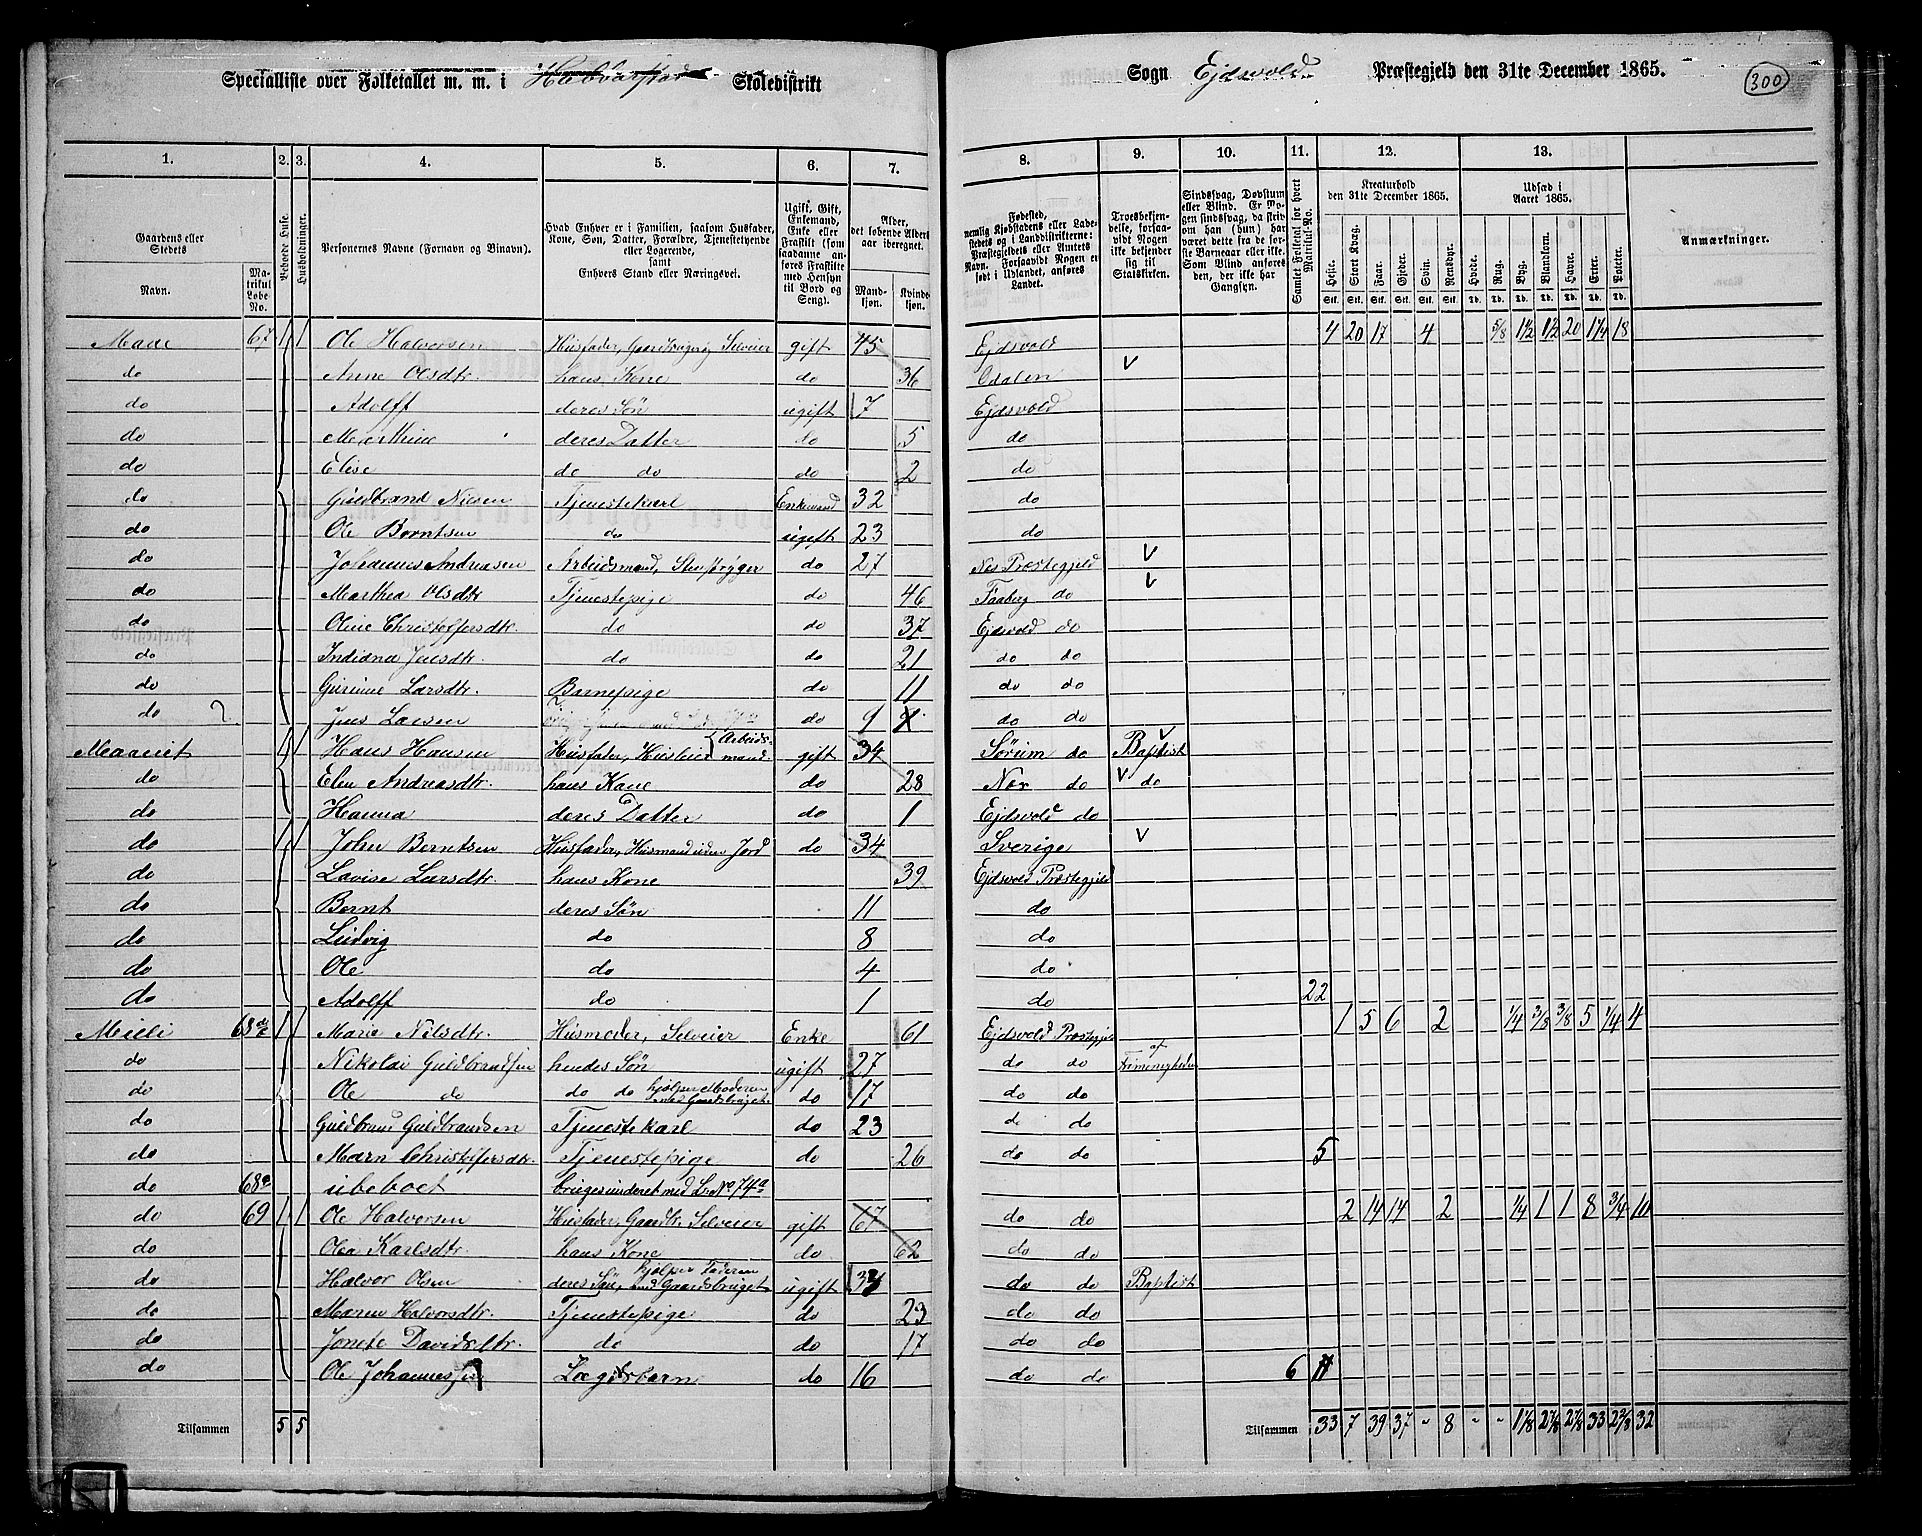 Specialliste over Folketallet m. m. i Skoledistrikt
Sogn Ejdsvold Præstegjeld den 31te December 1865.
300
1. 2. 3. 4. 5. 6. 7. 8. 9. 10. 11. 12. 13.
Gaardens eller Stedets
Navn. Matrikul Løbe-No.
Beboede Huse.
Husholdninger.
Personernes Navne (Fornavn og Binavn).
Hvad Enhver er i Familien, saasom Husfader, Kone, Søn, Datter, Forældre, Tjenestetyende eller Logerende, samt Enhvers Stand eller Næringsvei.
Ugift, Gift, Enkemand, Enke eller Fraskilt (som saadanne anføres Fraskilte med Hensyn til Bord og Seng).
Alder, det løbende Alders aar iberegnet.
Mandkjøn. Kvindekjøn.
Fødested, nemlig Kjøbstadens eller Ladestedets og i Landdistrikterne: Præstegjeldets eller Amtets Navn. Forsaavidt Nogen er født i Udlandet, anføres Landet.
Troesbekjendelse, forsaavidt Nogen ikke bekjender sig til Statskirken.
Sindssvag, Døvstum eller Blind. Er Nogen sindssvag, da skrives han (hun) har været dette fra de første Barneaar eller ikke. Som Blind anføres den, der ikke har Gangsyn.
Samlet Folketal for hvert Matrikul-No.
Kreaturhold den 31te December 1865.
Heste. Stort Kvæg. Faar. Gjeder. Svin. Rensdyr.
Udsæd i Aaret 1865.
Hvede. Rug. Byg. Blandkorn. Havre. Erter. Poteter.
Anmærkninger.
67 1 1 Ole Halvorsen Husfader, Gaardbruger, Selveier gift 45 Ejdsvold 4 20 17 4 5/8 1½ 1½ 20 1¼ 18
do Anne Olsdtr. hans Kone do 36 Odalen
do Adolff deres Søn ugift 7 Ejdsvold
do Marthine deres Datter do 5 do
do Elise do do do 2 do
do Guldbrand Nilsen Tjenestekarl Enkemand 32 do
do Ole Berntsen do ugift 23 do
do Johannes Andreasen Arbeidsmand, do 27 Nes Præstegjeld
do Marthea Olsdtr Tjenestepige do 46 Faaberg do
do Oline Christoffersdtr. do do 37 Ejdsvold do
do Indiana Jensdtr. do do 21 do do
do Gurine Larsdtr. Barnepige do 11 do do
do Jens Larsen do 9 do do
1 1 Hans Hansen Husfader, Husleier Arbeidsmand gift 34 Sørum do Baptist
do Elen Andreasdtr. hans Kone do 28 Nes do do
do Hanna deres Datter do 1 Ejdsvold do
do 1 1 John Berntsen Husfader, Husmand uden Jord do 34 Sverige
do Lovise Larsdtr. hans Kone 39 Ejdsvold Præstegjeld
do Bernt deres Søn 11 do
do Ludvig do 8 do
do Ole do 4 do
do Adolff do 1 do 22
1 1 Marie Nilsdtr. Husmoder, Selveier Enke 61 Ejdsvold Præstegjeld 1 5 6 2 ¼ 3/8 3/8 5 ¼ 4
do Nikolai Guldbrandsen hendes Søn ugift 27 do do
do Ole do do do hjælper Moderen med Gaardsbruget do 17 do do
do Guldbrand Guldbrandsen Tjenestekarl do 23 do do
do Maren Christoffersdtr. Tjenestepige do 26 do do 5
do 68a ubeboet bruges underet med L. No. 74a
do 69 1 1 Ole Halvorsen Husfader, Gaardbr. Selveier gift 67 do do 2 14 14 2 ¼ 1 1 8 ¾ 10
do Olea Karlsdtr. hans Kone do 62 do do
do Halvor Olsen deres Søn, hjælper Faderen med Gaardsbruget ugift 33 do do Baptist
do Maren Halvorsdtr. Tjenestepige do 23 do do
do Jonete Davidsdtr. do do 17 do do
do Ole Johannessen Lægdsbarn do 16 do do 6
Tilsammen 5 5
Tilsammen 33 7 39 37 " 8 " " 1⅛ 2⅞ 2⅞ 33 2⅜ 32